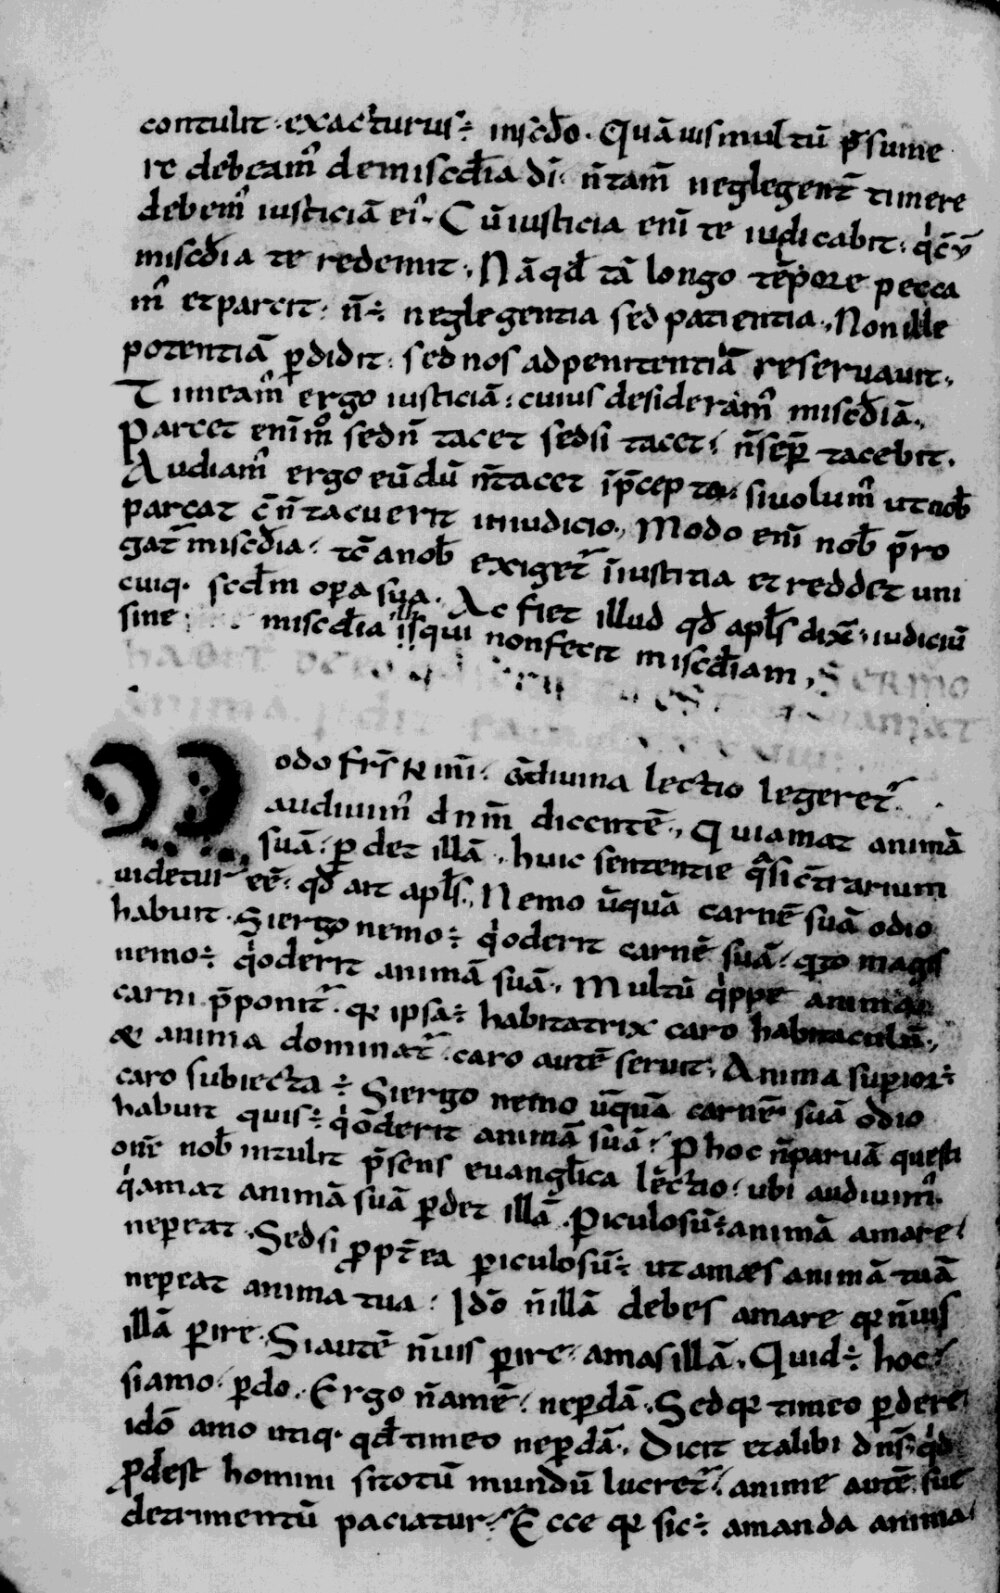 contulit · exacturus ÷ inscd̄o · Quāuis multū p̄sume
re debeam᷒ demiscd̄ia dī · n̄ tam̄ neglegent̄ timere
debem᷒ iusticiā ei᷒ · Cū iusticia enī te iudicabit · q̇ c̄
miscd̄ia te redemit · Nā qd̄ tā longo tēpore pecca
m᷒ et parcit · n̄ ÷ neglegentia sed patientia · Non ille
potentiā ꝑdidit · sed nos ad penitentiā reseruauit ·
Timeam᷒ ergo iusticiā · cuius desideram᷒ miscd̄iā ·
Parcet enī mº sed n̄ tacet sed si tacet · n̄ semꝑ tacebit ·
Audiam᷒ ergo eū dū n̄ tacet ī p̄cepto · si uolum᷒ ut nob̄
parcat c̄ n̄ tacuerit in iudicio · Modo enī nob̄ p̄ro
gat᷒ miscd̄ia · tc̄ a nob̄ exiget᷒ īiustitia et reddet uni
cuiq · scd̄m oꝑa sua · Ac fiet illud qd̄ apl̄s dix̄ · iudiciū
sine miscd̄ia illi qui non fecit miscd̄iam · SERMO
odo fr̄s k̄mī · c̄ diuina lectio legeret᷒
audiuim᷒ dnm̄ dicentē · Qui amat animā
suā · ꝑdet illā · huic sententie q̄si c̄trarium
uidetur eē · qd̄ ait apl̄s · Nemo ūquā carnē suā odio
habuit · Si ergo nemo ÷ q̇ oderit carnē suā · qto magis
nemo ÷ q̇ oderit animā suā · Multū q̇ppe anima
carni p̄ponit᷒ · qr ipsa ÷ habitatrix caro habitaculū ·
& anima dominat᷒ · caro autē seruit · Anima suꝑior ÷
caro subiecta ÷ Si ergo nemo ūquā carnē suā odio
habuit quis ÷ q̇ oderit animā suā · P hoc n̄ paruā questi
onē nob̄ intulit p̄sens euangl̄ica lectio · ubi audiuim᷒
q̇ amat animā suā ꝑdet illā · Piculosū ÷ animā amare ·
ne pereat · Sed si ꝓpt̄ea ꝑiculosū ÷ ut ames animā tuā
ne pereat anima tua · Idō n̄ illā debes amare qr n̄ uis
illā ꝑire · Si autē n̄ uis ꝑire · amas illā · Quid ÷ hoc ·
si amo · ꝑdo · Ergo n̄ amē · ne ꝑdā · Sed qr timeo ꝑdere
idō amo utiq · qd̄ timeo ne ꝑdā · Dicit et alibi dn̄s · qd
ꝓdest homini si totū mundū lucret᷒ · anime autē sue
detrimentū paciatur · Ecce qr sic ÷ amanda anima